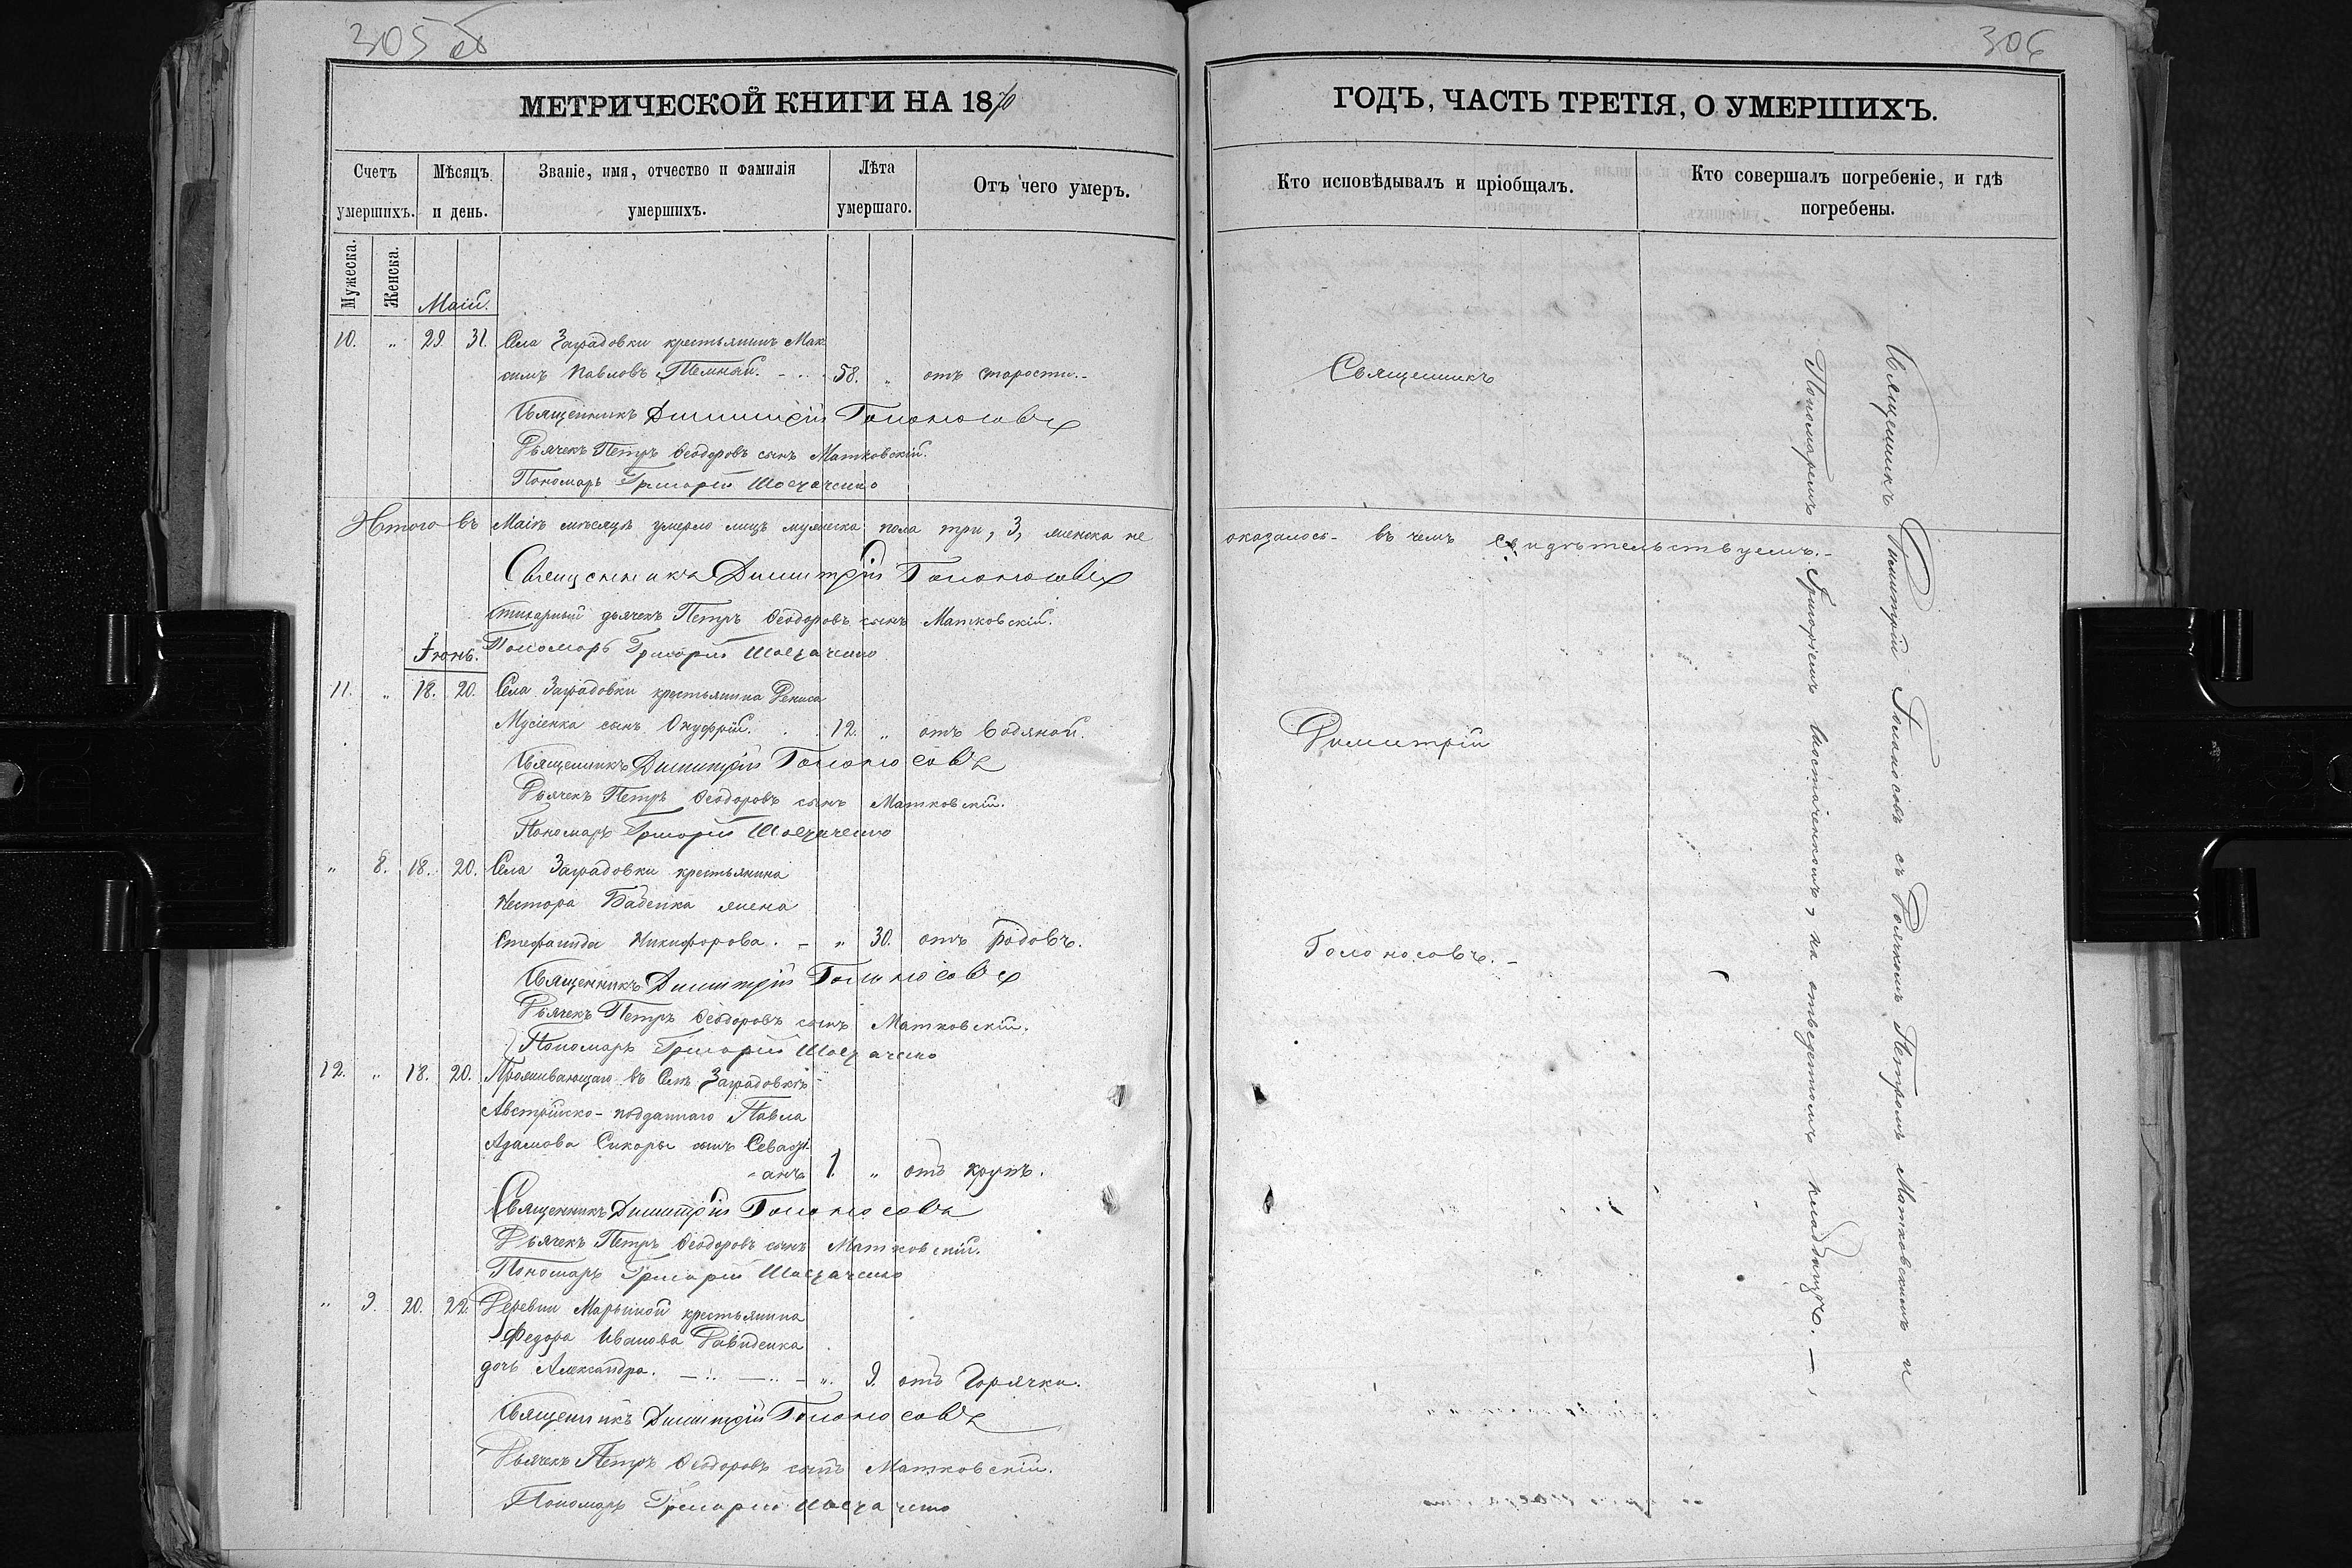 305 об
МЕТРИЧЕСКОЙ КНИГИ НА 1870
Счетъ умершихъ.
Мѣсяцъ и день.
Званіе, имя, отчество и фамилія умершихъ.
Лѣта умершаго.
Отъ чего умеръ.
Мужеска.
Женска.
Маій.
10. " 29. 31. Села Заградовки крестьянинъ Мак
симъ Павловъ Темный. 58. " отъ старости.-
Священникъ Димитрій Голоносовъ
Дьячекъ Петръ Ѳеодоровъ сынъ Матковскій.
Пономарь Григорій
Итого въ Маіѣ мѣсяцѣ умерло лицъ мужеска пола три, 3, женска не
Священникъ Димитрій Голоносовъ
Стихарный дьячекъ Петръ Ѳеодоровъ сынъ Матковскій.
Пономарь Григорій
Іюнь.
11. " 18. 20. Села Заградовки крестьянина Дениса
Мусіенка сынъ Онуфрій. 12. " отъ водяной.
Священникъ Димитрій Голоносовъ
Дьячекъ Петръ Ѳеодоровъ сынъ Матковскій.
Пономарь Григорій
" 8. 18. 20. Села Заградовки крестьянина
Нестора Баденка жена
Стефанида Никифорова. - " 30. отъ родовъ.
Священникъ Димитрій Голоносовъ
Дьячекъ Петръ Ѳеодоровъ сынъ Матковскій.
Пономарь Григорій
12. " 18. 20. Проживающаго въ Селѣ Заградовкѣ
Австрійско-подданнаго Павла
Адамова Сикоры сынъ Севасті-
анъ 1. " отъ крупъ.
Священникъ Димитрій Голоносовъ
Дьячекъ Петръ Ѳеодоровъ сынъ Матковскій.
Пономарь Григорій
" 9. 20. 22. Деревни Марьиной крестьянина
Федора Иванова Давиденка
дочь Александра. " 9. отъ горячки.
Священникъ Димитрій Голоносовъ
Дьячекъ Петръ Ѳеодоровъ сынъ Матковскій.
Пономарь Григорій
306
ГОДЪ, ЧАСТЬ ТРЕТІЯ, О УМЕРШИХЪ.
Кто исповѣдывалъ и пріобщалъ.
Кто совершалъ погребеніе, и гдѣ
погребены.
Священникъ
оказалось- въ чемъ свидѣтельствуемъ.-
Димитрій
Голоносовъ.-
Священникъ Димитрій Голоносовъ съ Дьячкомъ Петромъ Матковскимъ и
Пономаремъ Григоріемъ на отведенномъ кладбищѣ.-